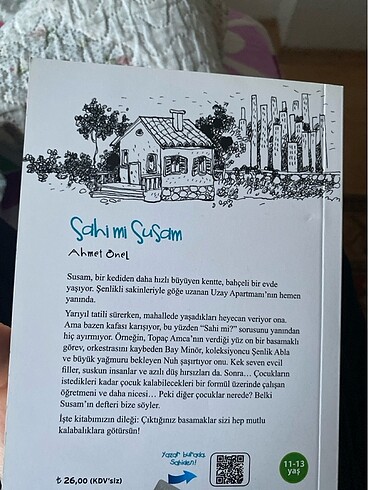 Sahi mi Susam
Ahmet Önel
Susam, bir kediden daha hızlı büyüyen kentte, bahçeli bir evde
yaşıyor. Şenlikli sakinleriyle göğe uzanan Uzay Apartmanı'nın hemen
yanında.
Yarıyıl tatili sürerken, mahallede yaşadıkları heyecan veriyor ona.
Ama bazen kafası karışıyor, bu yüzden "Sahi mi?" sorusunu yanından
hiç ayırmıyor. Örneğin, Topaç Amca'nın verdiği yüz on bir basamaklı
görev, orkestrasını kaybeden Bay Minör, koleksiyoncu Şenlik Abla
ve büyük yağmuru bekleyen Nuh şaşırtıyor onu. Kek seven evcil
filler, suskun insanlar ve azılı düş hırsızları da. Sonra… Çocukların
istedikleri kadar çocuk kalabilecekleri bir formül üzerinde çalışan
öğretmeni ve daha nicesi… Peki diğer çocuklar nerede? Belki
Susam'ın defteri bize söyler.
İşte kitabımızın dileği: Çıktığınız basamaklar sizi hep mutlu
kalabalıklara götürsün!
Yazar burada.
Sahiden!
11-13
yaş
₺ 26,00 (KDV'siz)